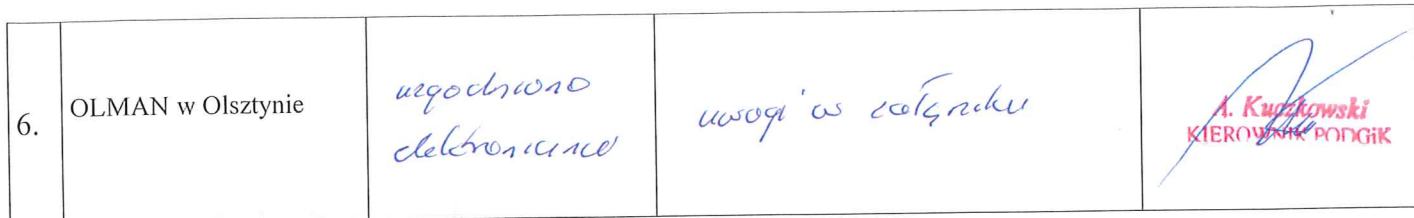 6.
OLMAN w Olsztynie
uzgodniono
elektronicznie
uwagi w załączniku
A. Kuczkowski
KIEROWNIK PODGiK